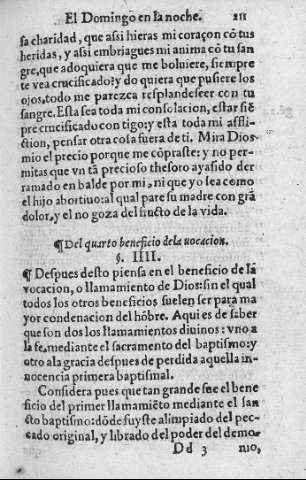 El Domingo en la noche. 211
sa charidad, que assi hieras mi coraçon cõ tus
heridas, y assi embriagues mi anima cõ tu san
gre, que adoquiera que me boluiere, siempre
te vea crucificado: y do quiera que pusiere los
ojos, todo me parezca resplandescer con tu
sangre. Esta sea toda mi consolacion, estar siẽ
pre crucificado con tigo: y esta toda mi affli-
ction, pensar otra cosa fuera de ti. Mira Dios
mio el precio porque me cõpraste: y no per-
mitas que vn tã precioso thesoro aya sido der
ramado en balde por mi, ni que yo sea como
el hijo abortiuo: al qual pare su madre con grã
dolor, y el no goza del fructo de la vida.
¶ Del quarto beneficio dela vocacion.
§. IIII.
¶ Despues desto piensa en el beneficio de la
vocacion, o llamamiento de Dios: sin el qual
todos los otros beneficios suelen ser para ma
yor condenacion del hõbre. Aqui es de saber
que son dos los llamamientos diuinos: vno a
la fe, mediante el sacramento del baptismo: y
otro ala gracia despues de perdida aquella in-
nocencia primera baptismal.
Considera pues que tan grande fue el bene
ficio del primer llamamiẽto mediante el san
cto baptismo: dõde fuyste alimpiado del pec-
cado original, y librado del poder del demo-
Dd 3 nio,